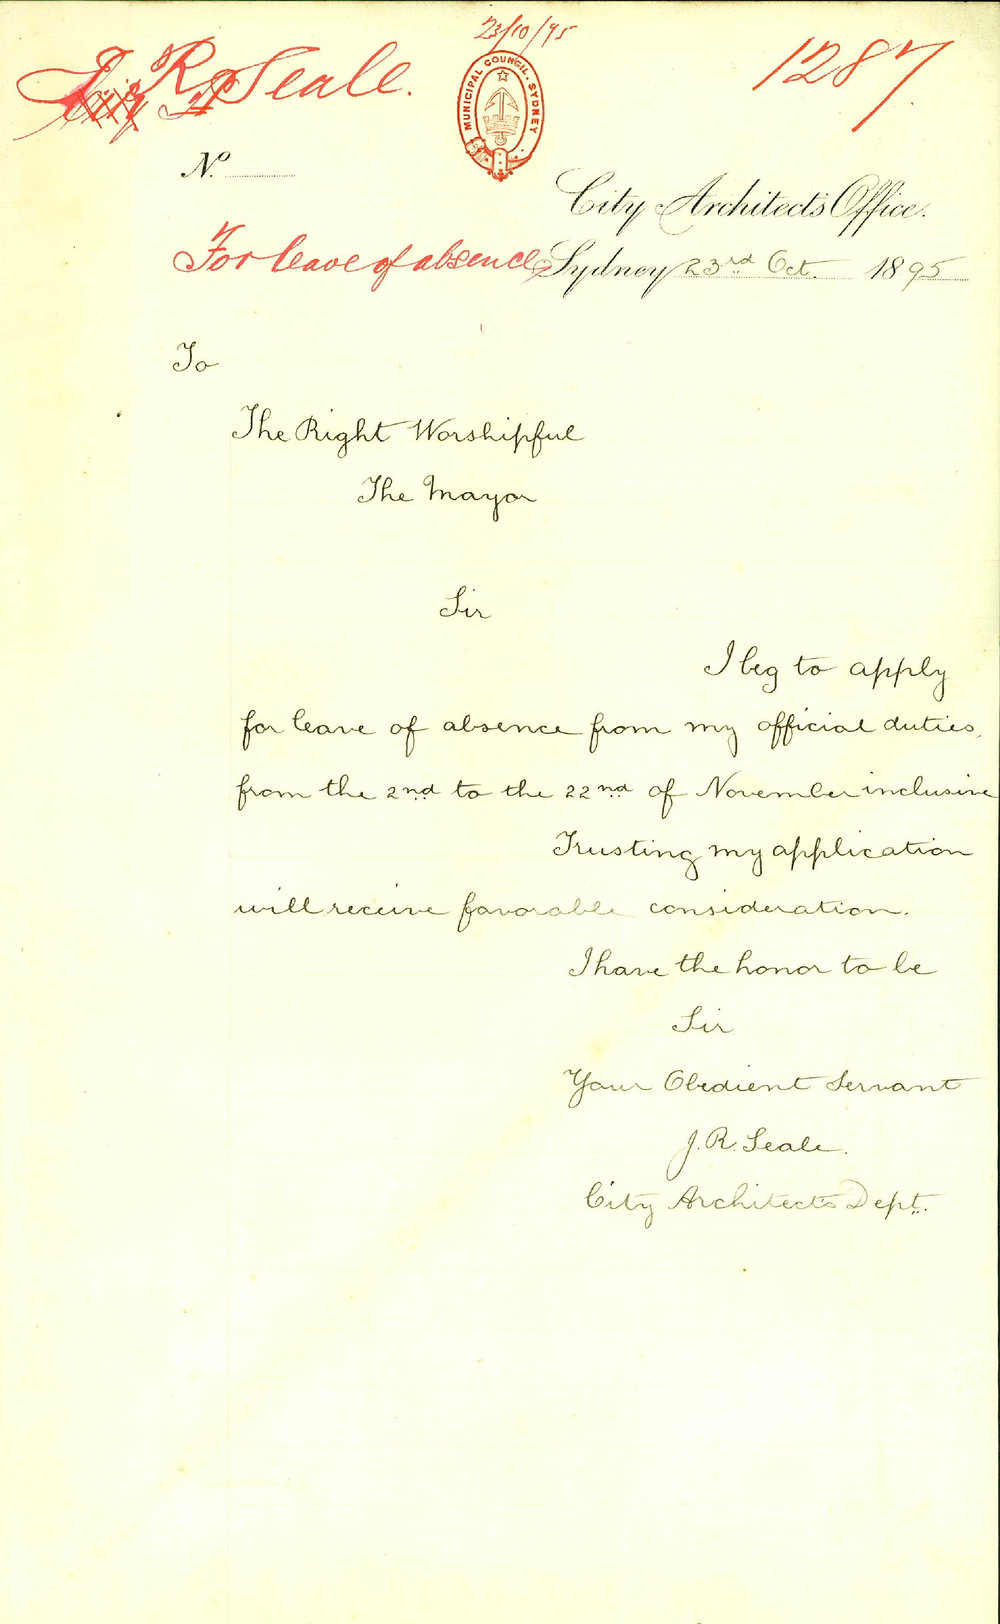 23/10/95
J. R. Seale.
1287
MUNICIPAL COUNCIL. SYDNEY
No.
City Architect's Office.
For leave of absence
Sydney 23rd Oct. 1895
To
The Right Worshipful
The Mayor
Sir
I beg to apply
for leave of absence from my official duties,
from the 2nd to the 22nd of November inclusive
Trusting my application
will receive favorable consideration.
I have the honor to be
Sir
Your Obedient Servant
J. R. Seale.
City Architect's Dept.